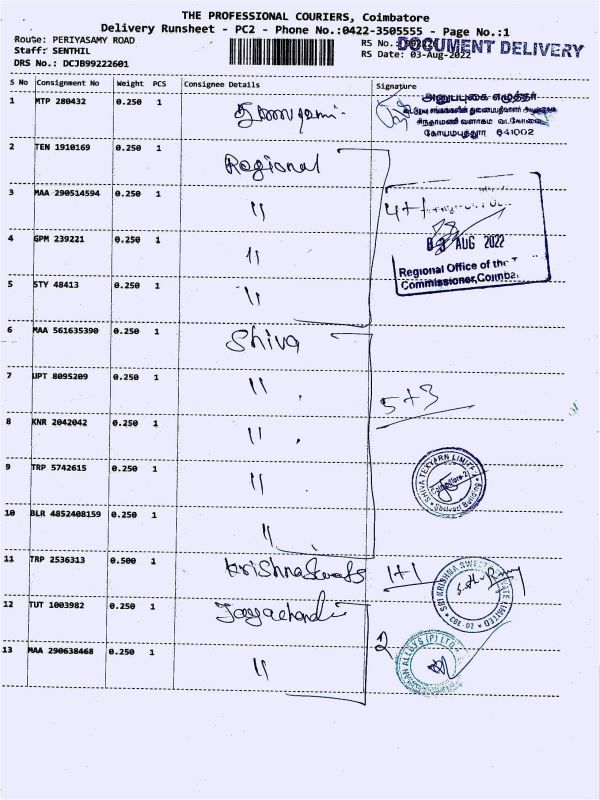 THE PROFESSIONAL COURIERS, Coimbatore
Delivery Runsheet - PC2 - Phone No.:0422-3505555 - Page No.:1
Route: PERIYASAMY ROAD
Staff: SENTHIL
DRS No.: DCJB99222601
RS No.:
DOCUMENT DELIVERY
RS Date: 03-Aug-2022
S No Consignment No Weight PCS Consignee Details Signature
1 MTP 280432 0.250 1
அனுப்புகை எழுத்தர்
சிந்தாமணி வளாகம் வடகோவை
கோயமுத்தூர் 641002
2 TEN 1910169 0.250 1 Regional
3 MAA 290514594 0.250 1 " 4+1
4 GPM 239221 0.250 1 "
03 AUG 2022
Regional Office of the
Commissioner, Coimba
5 STY 48413 0.250 1 "
6 MAA 561635390 0.250 1 Shiva
7 UPT 8095209 0.250 1 " 5+3
8 KNR 2042042 0.250 1 "
9 TRP 5742615 0.250 1 "
SHIVA TEXYARN LIMITED
10 BLR 4852408159 0.250 1 "
11 TRP 2536313 0.500 1 Krishna Sweets 1+1
SRI KRISHNA SWEETS PRIVATE LIMITED
CBE-02
12 TUT 1003982 0.250 1 Jayachandr
13 MAA 290638468 0.250 1 " 2
ALLOYS (P) LTD